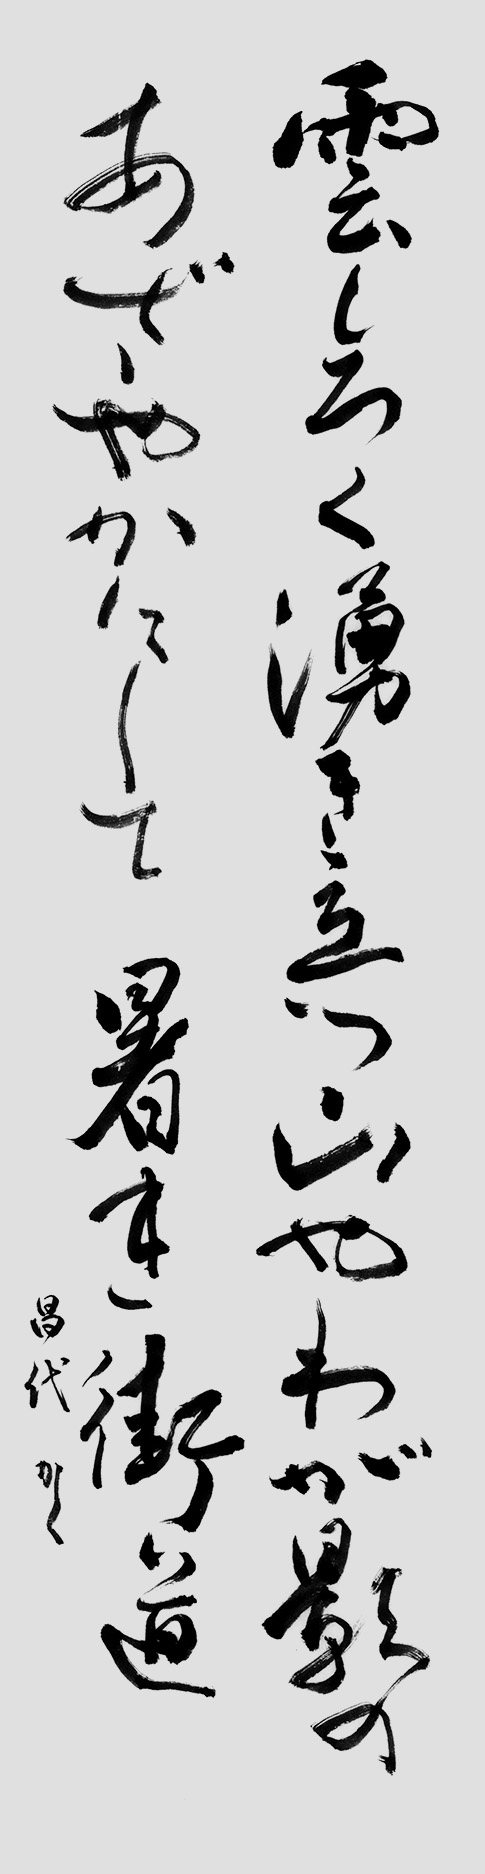 雲しろく湧き立つ山やわが影の
あざやかにして 暑き街道
昌代かく